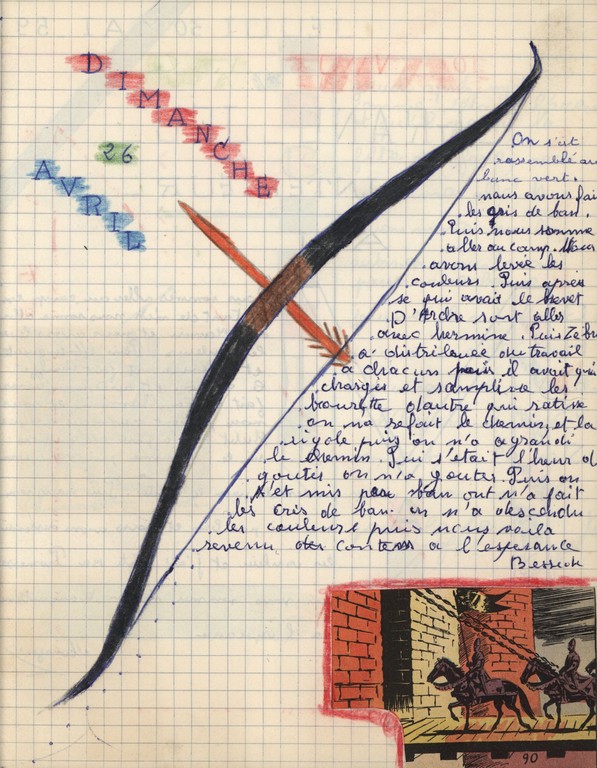 DIMANCHE
26
AVRIL
On s'est
rassemblé au
banc vert.
nous avons fai
les gris de ban.
Puis nous somme
aller au camp. Nous
avons levée les
couleurs. Puis après
se qui avait le brevet
D'Ardre sont allés
avec hermine. Puis Zèbr
a distribuée du travail
a chacuns il avait qui
chargis et
bourette d'autre qui ratise
on na refait le chemin et la
rigole puis on n'a agrandi
le chemin. Pui s'était l'heur d
goutés on n'a goutés. Puis on
s'et mis ban ont n'a fait
les cris de ban. on n'a descendu
les couleurs puis nous voila
revenu contens a l'esperance
90